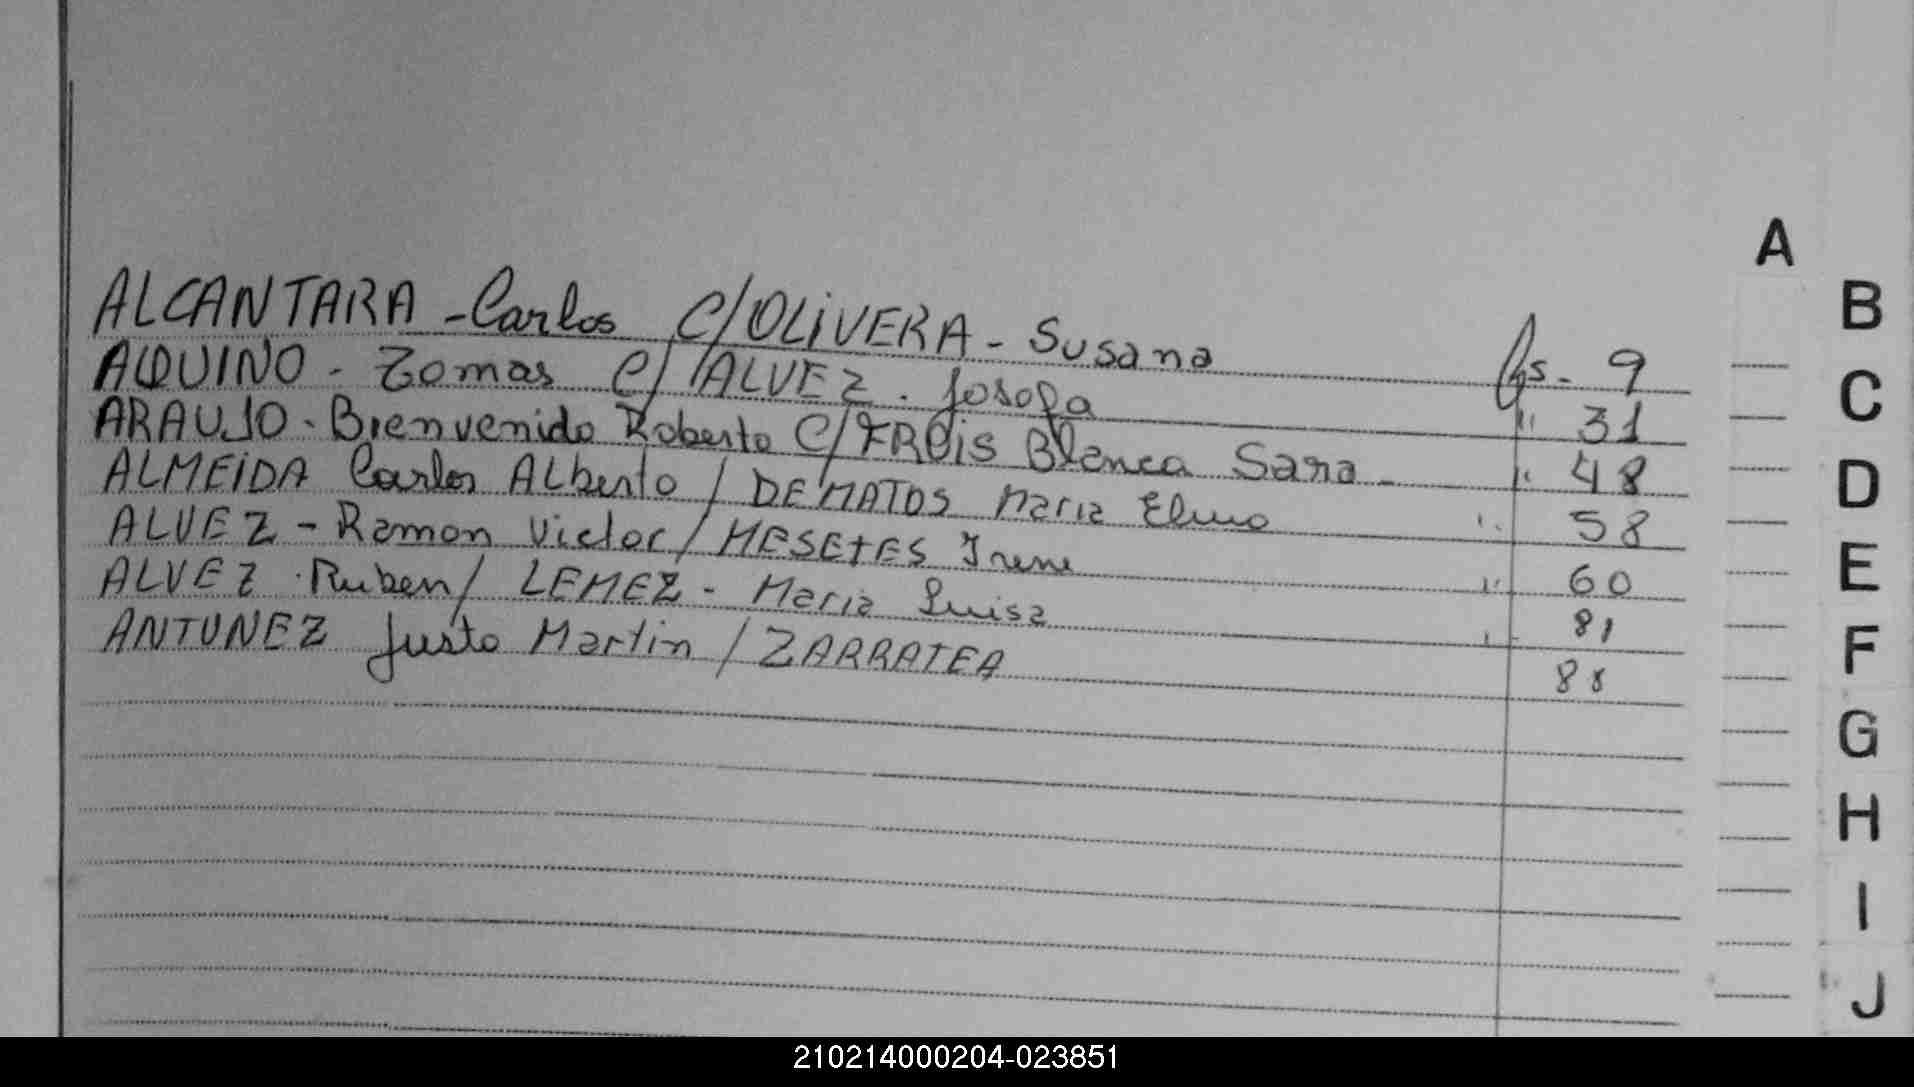 A
B
C
D
E
F
G
H
I
J
ALCANTARA - Carlos C/OLIVERA - Susana fjs. 9
AQUINO - Tomas C/ ALVEZ. Josefa " 31
ARAUJO - Bienvenido Roberto C/ FROIS Blanca Sara - " 48
ALMEIDA Carlos ALberto / DE MATOS Maria Elma " 58
ALVEZ - Ramon Victor / MESETES Irene " 60
ALVEZ . Ruben / LEMEZ - Maria Luisa 81
ANTUNEZ Justo Martin / ZARRATEA 88
210214000204-023851